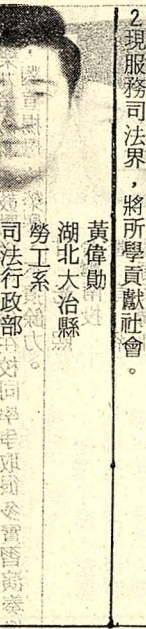 2.現服務司法界，將所學貢獻社會。
黃偉勛
湖北大治縣
勞工系
司法行政部